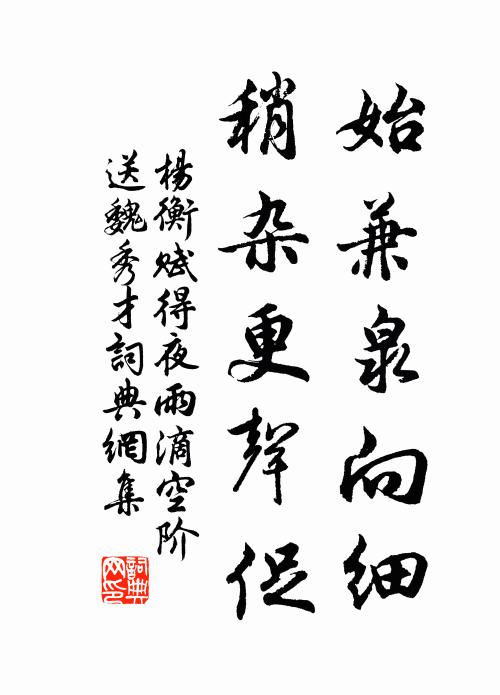 始兼泉向细
稍杂更聲促
楊衡赋得夜雨滴空阶
送魏秀才詞典網集
詞典网印